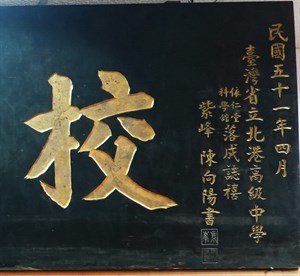 民國五十一年四月
臺灣省立北港高級中學
依仁堂
科學館
落成誌禧
紫峰 陳向陽書
校